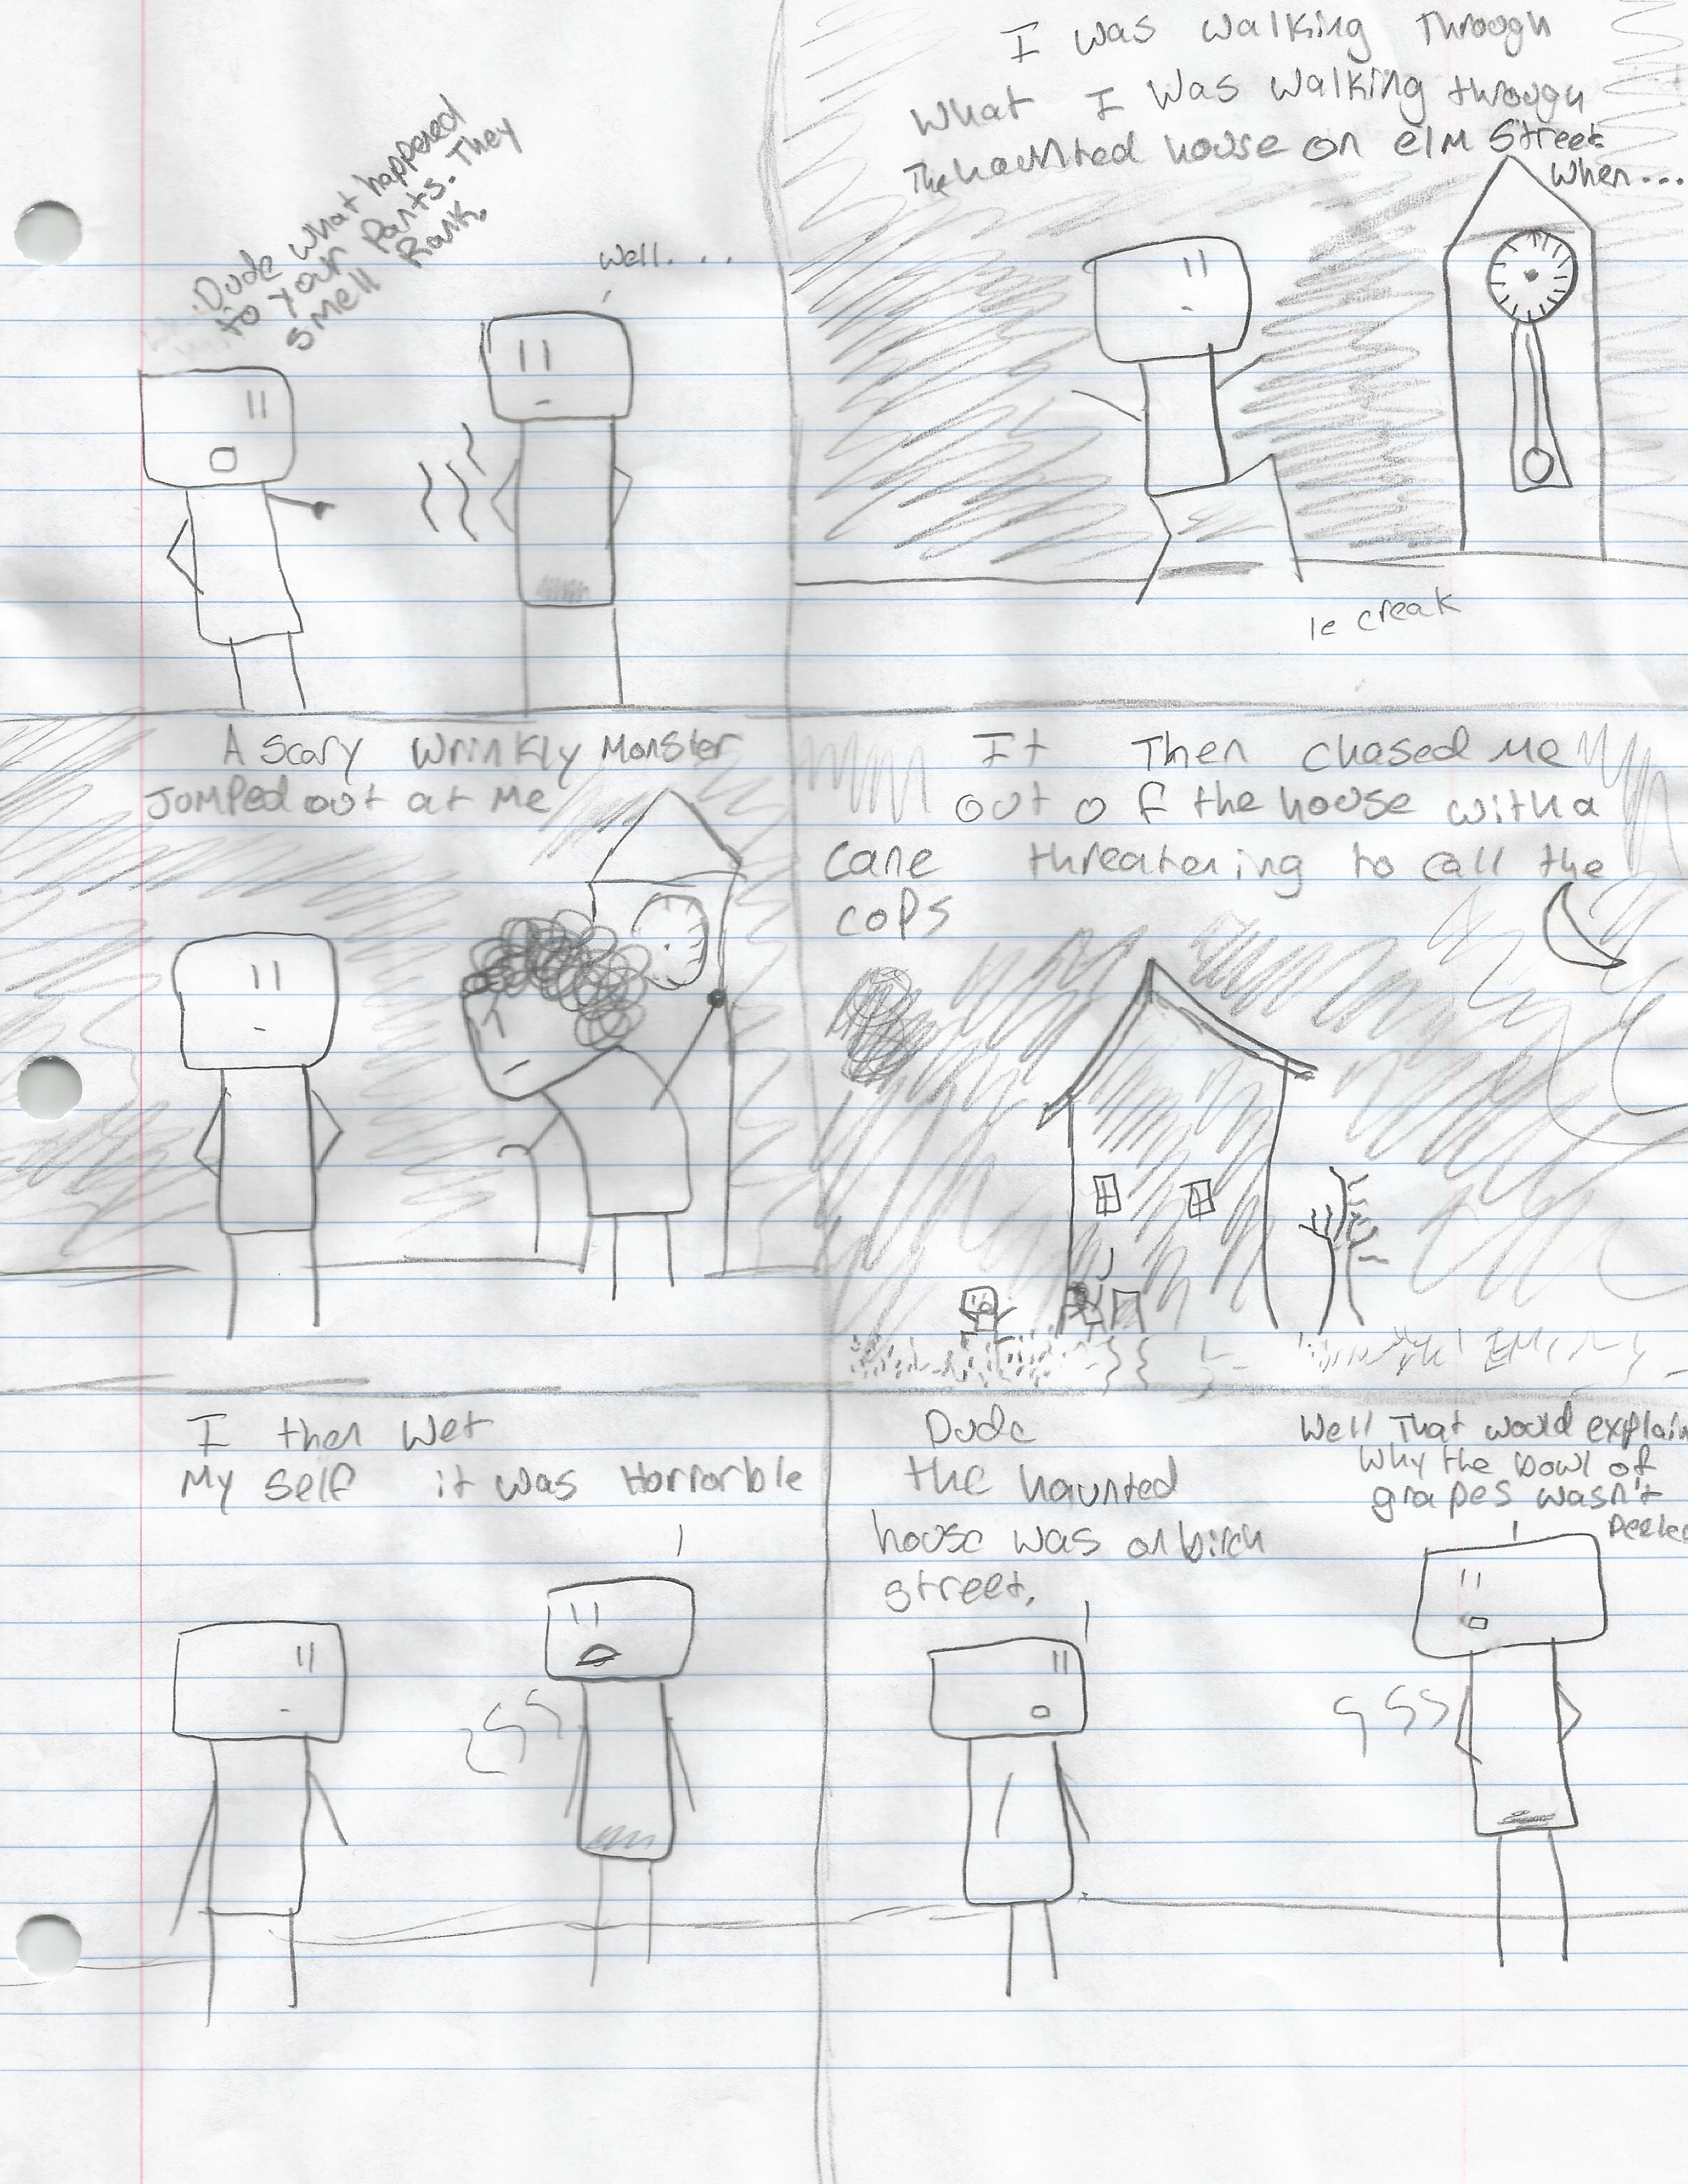 Dude what happened
to your pants. They
smell Rank.
Well....
I was walking through
What I was walking through
The haunted house on elm Street
When...
le creak
A scary wrinkly monster
Jumped out at me
It Then chased me
out of the house with a
cane threatening to call the
cops
I then wet
My self it was Horrorble
Dude
the haunted
house was on birch
street.
Well That would explain
Why the bowl of
grapes wasn't